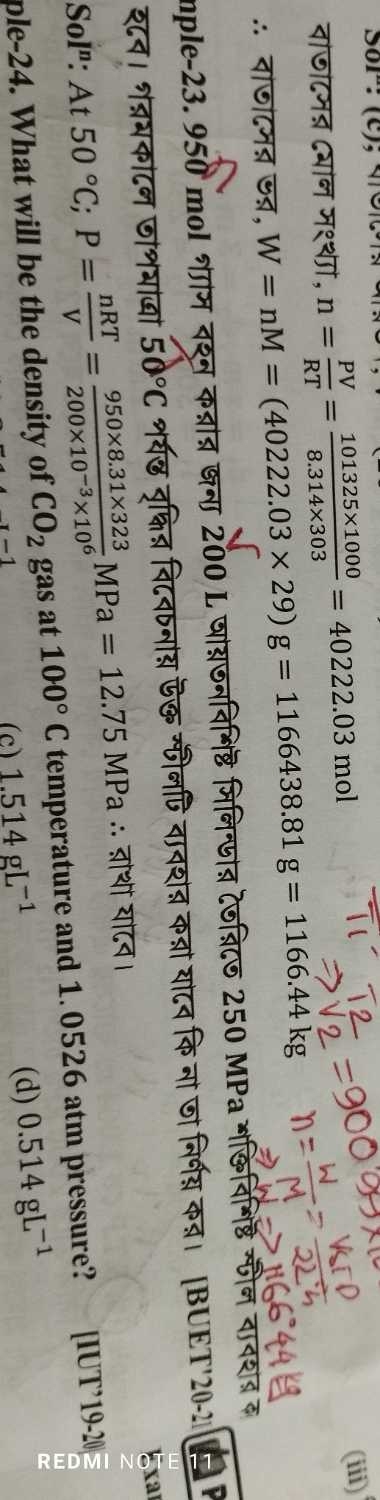 Sol
বাতাসের মোল সংখ্যা, n = PV/RT = 101325×1000/8.314×303 = 40222.03 mol
∴ বাতাসের ভর, W = nM = (40222.03 × 29) g = 1166438.81 g = 1166.44 kg
nple-23. 950 mol গ্যাস বহন করার জন্য 200 L আয়তনবিশিষ্ট সিলিন্ডার তৈরিতে 250 MPa শক্তিবিশিষ্ট স্টীল ব্যবহার ক
হবে। গরমকালে তাপমাত্রা 50°C পর্যন্ত বৃদ্ধির বিবেচনায় উক্ত স্টীলটি ব্যবহার করা যাবে কি না তা নির্ণয় কর। [BUET'20-21]
Solⁿ: At 50 °C; P = nRT/V = 950×8.31×323/200×10⁻³×10⁶ MPa = 12.75 MPa ∴ রাখা যাবে।
ple-24. What will be the density of CO₂ gas at 100° C temperature and 1. 0526 atm pressure? [IUT'19-20]
(c) 1.514 gL⁻¹ (d) 0.514 gL⁻¹
T₁ T₂
⇒ V2 = 900
n = W/M = /22.4
⇒ W => 1166.44 kg
(iii)
Exa
REDMI NOTE 11